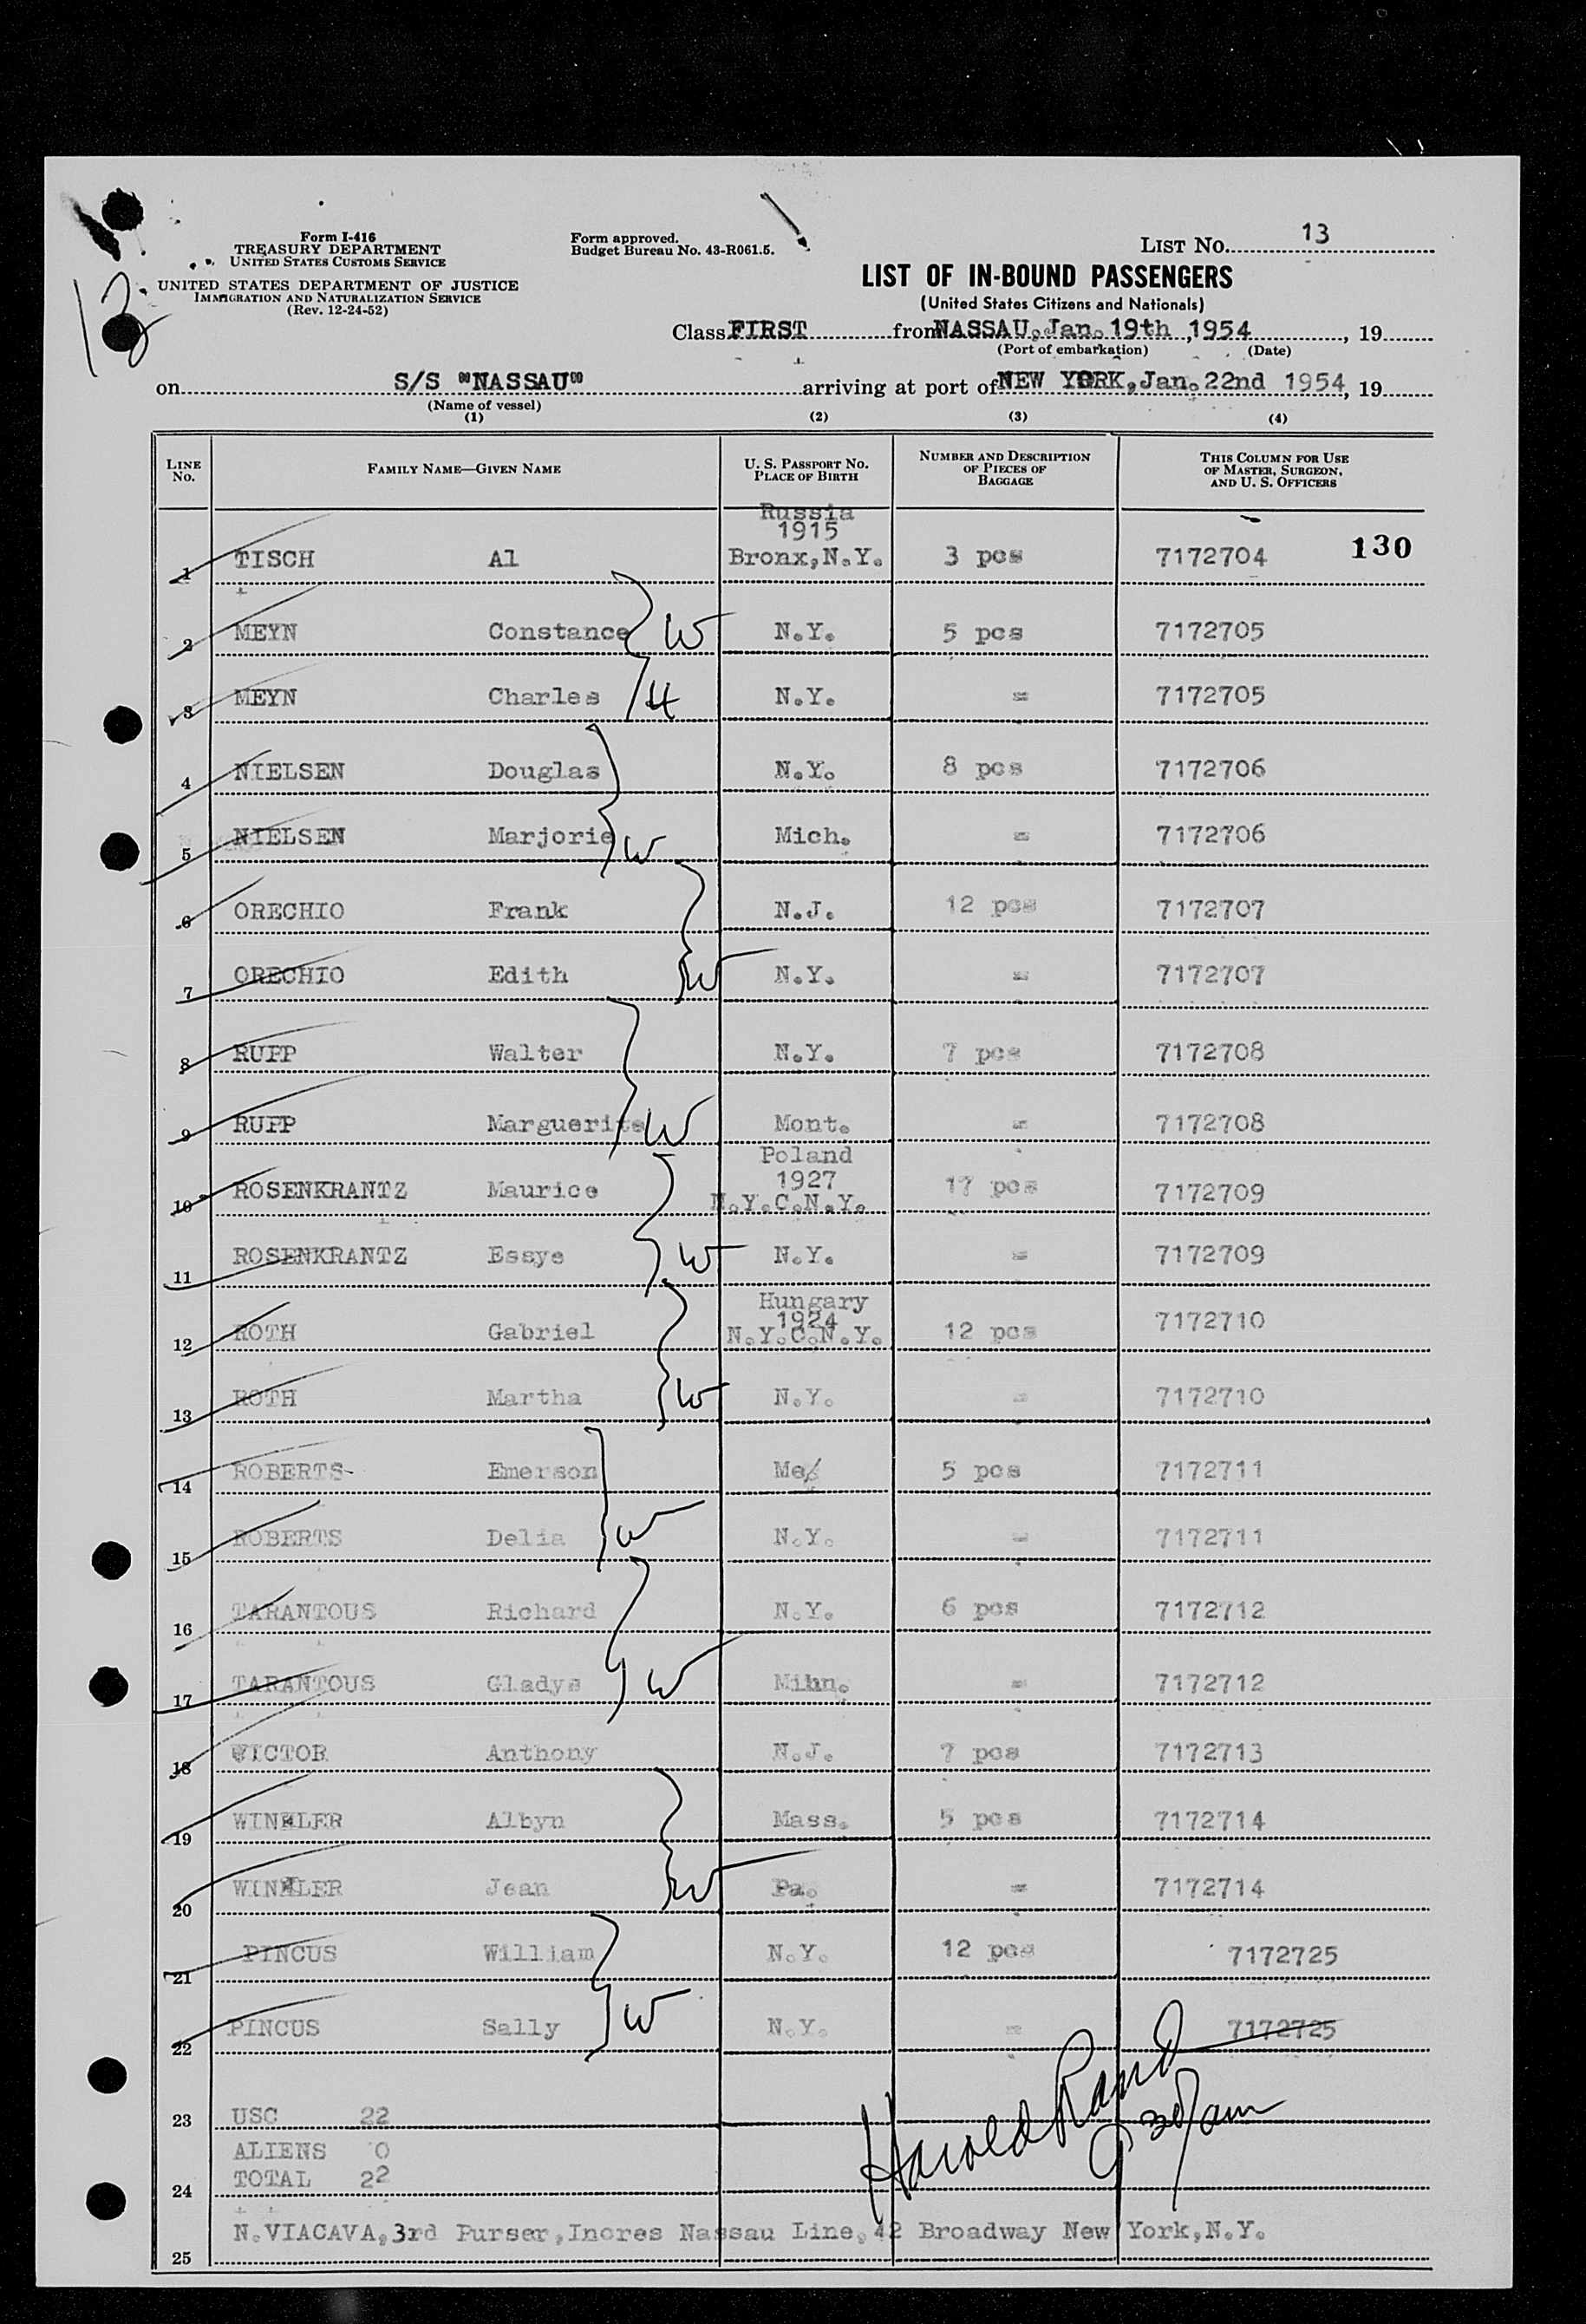 Form I-416
TREASURY DEPARTMENT
UNITED STATES CUSTOMS SERVICE
UNITED STATES DEPARTMENT OF JUSTICE
IMMIGRATION AND NATURALIZATION SERVICE
(Rev. 12-24-52)
Form approved.
Budget Bureau No. 43-R061.5.
13
LIST No. 13
LIST OF IN-BOUND PASSENGERS
(United States Citizens and Nationals)
Class FIRST from NASSAU, Jan. 19th, 1954, 19
(Port of embarkation) (Date)
on S/S "NASSAU" arriving at port of NEW YORK, Jan. 22nd 1954, 19
(Name of vessel)
(1) (2) (3) (4)
LINE No. FAMILY NAME—GIVEN NAME U. S. PASSPORT No. PLACE OF BIRTH NUMBER AND DESCRIPTION OF PIECES OF BAGGAGE THIS COLUMN FOR USE OF MASTER, SURGEON, AND U. S. OFFICERS
Russia
1915
1 TISCH Al Bronx,N.Y. 3 pcs 7172704 130
2 MEYN Constance W N.Y. 5 pcs 7172705
3 MEYN Charles H N.Y. = 7172705
4 NIELSEN Douglas N.Y. 8 pcs 7172706
5 NIELSEN Marjorie W Mich. = 7172706
6 ORECHIO Frank N.J. 12 pcs 7172707
7 ORECHIO Edith W N.Y. = 7172707
8 RUPP Walter N.Y. 7 pcs 7172708
9 RUPP Marguerite W Mont. = 7172708
Poland
1927
10 ROSENKRANTZ Maurice N.Y.C.N.Y. 17 pcs 7172709
11 ROSENKRANTZ Essye W N.Y. = 7172709
Hungary
1924
12 ROTH Gabriel N.Y.C.N.Y. 12 pcs 7172710
13 ROTH Martha W N.Y. = 7172710
14 ROBERTS Emerson Me. 5 pcs 7172711
15 ROBERTS Delia W N.Y. = 7172711
16 TARANTOUS Richard N.Y. 6 pcs 7172712
17 TARANTOUS Gladys W = 7172712
18 Anthony N.J. 7 pcs 7172713
19 WINKLER Albyn Mass. 5 pcs 7172714
20 WINKLER Jean W Pa. = 7172714
21 PINCUS William N.Y. 12 pcs 7172725
22 PINCUS Sally W N.Y. = 7172725
Harold Rand
9 30/am
23 USC 22
ALIENS 0
24 TOTAL 22
25 N.VIACAVA,3rd Purser,Incres Nassau Line,42 Broadway New York,N.Y.